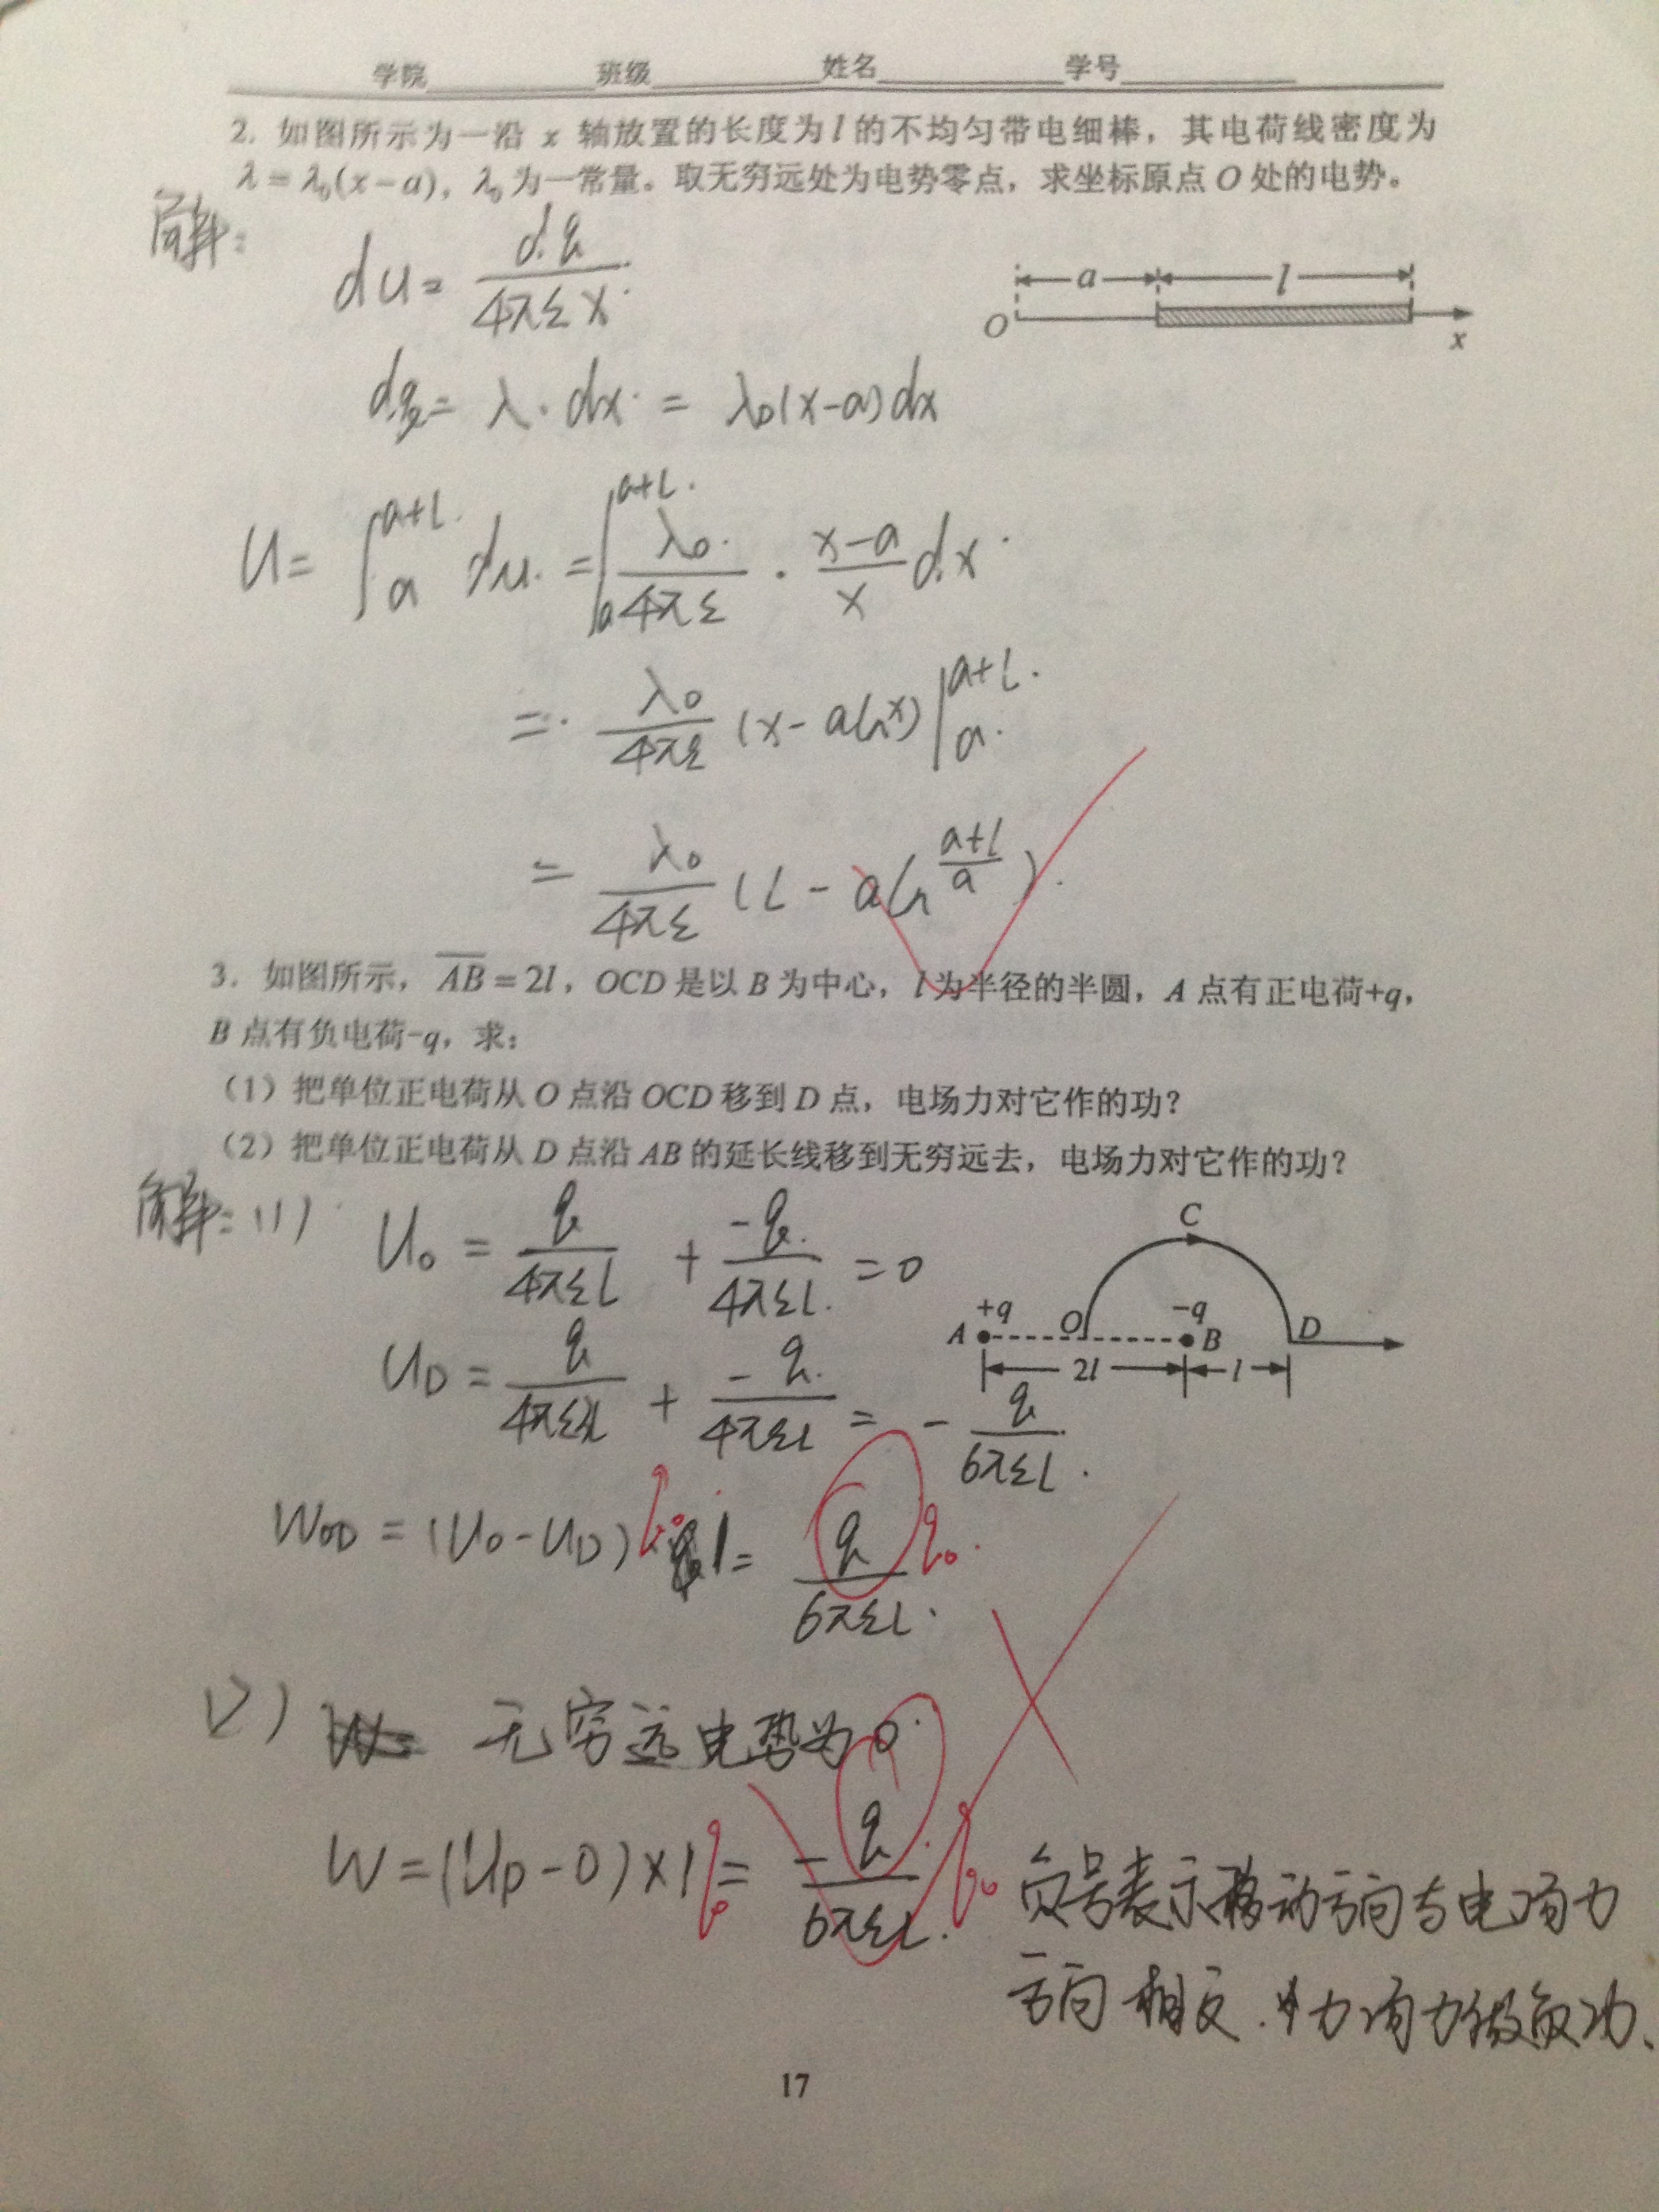 学院 班级 姓名 学号
2. 如图所示为一沿 x 轴放置的长度为 l 的不均匀带电细棒，其电荷线密度为
λ = λ₀(x−a)，λ₀ 为一常量。取无穷远处为电势零点，求坐标原点 O 处的电势。
解：
du = dq / 4πεx
a l
O x
dq = λ·dx = λ₀(x−a)dx
U = ∫ₐ^(a+l) du = ∫ₐ^(a+l) λ₀/4πε · (x−a)/x dx
= λ₀/4πε (x − a ln x) |ₐ^(a+l)
= λ₀/4πε (l − a ln (a+l)/a)
3. 如图所示，AB = 2l，OCD 是以 B 为中心，l 为半径的半圆，A 点有正电荷+q，
B 点有负电荷−q，求：
（1）把单位正电荷从 O 点沿 OCD 移到 D 点，电场力对它作的功？
（2）把单位正电荷从 D 点沿 AB 的延长线移到无穷远去，电场力对它作的功？
解：(1) U₀ = q/4πεl + −q/4πεl = 0
C
+q −q
A O B D
2l l
U_D = q/4πε3l + −q/4πεl = − q/6πεl
W_OD = (U₀ − U_D) q₀ 1 = q/6πεl q₀
(2) 无穷远电势为0
W = (U_D − 0) × 1 q₀ = −q/6πεl q₀ 负号表示移动方向与电场力
方向相反.
17